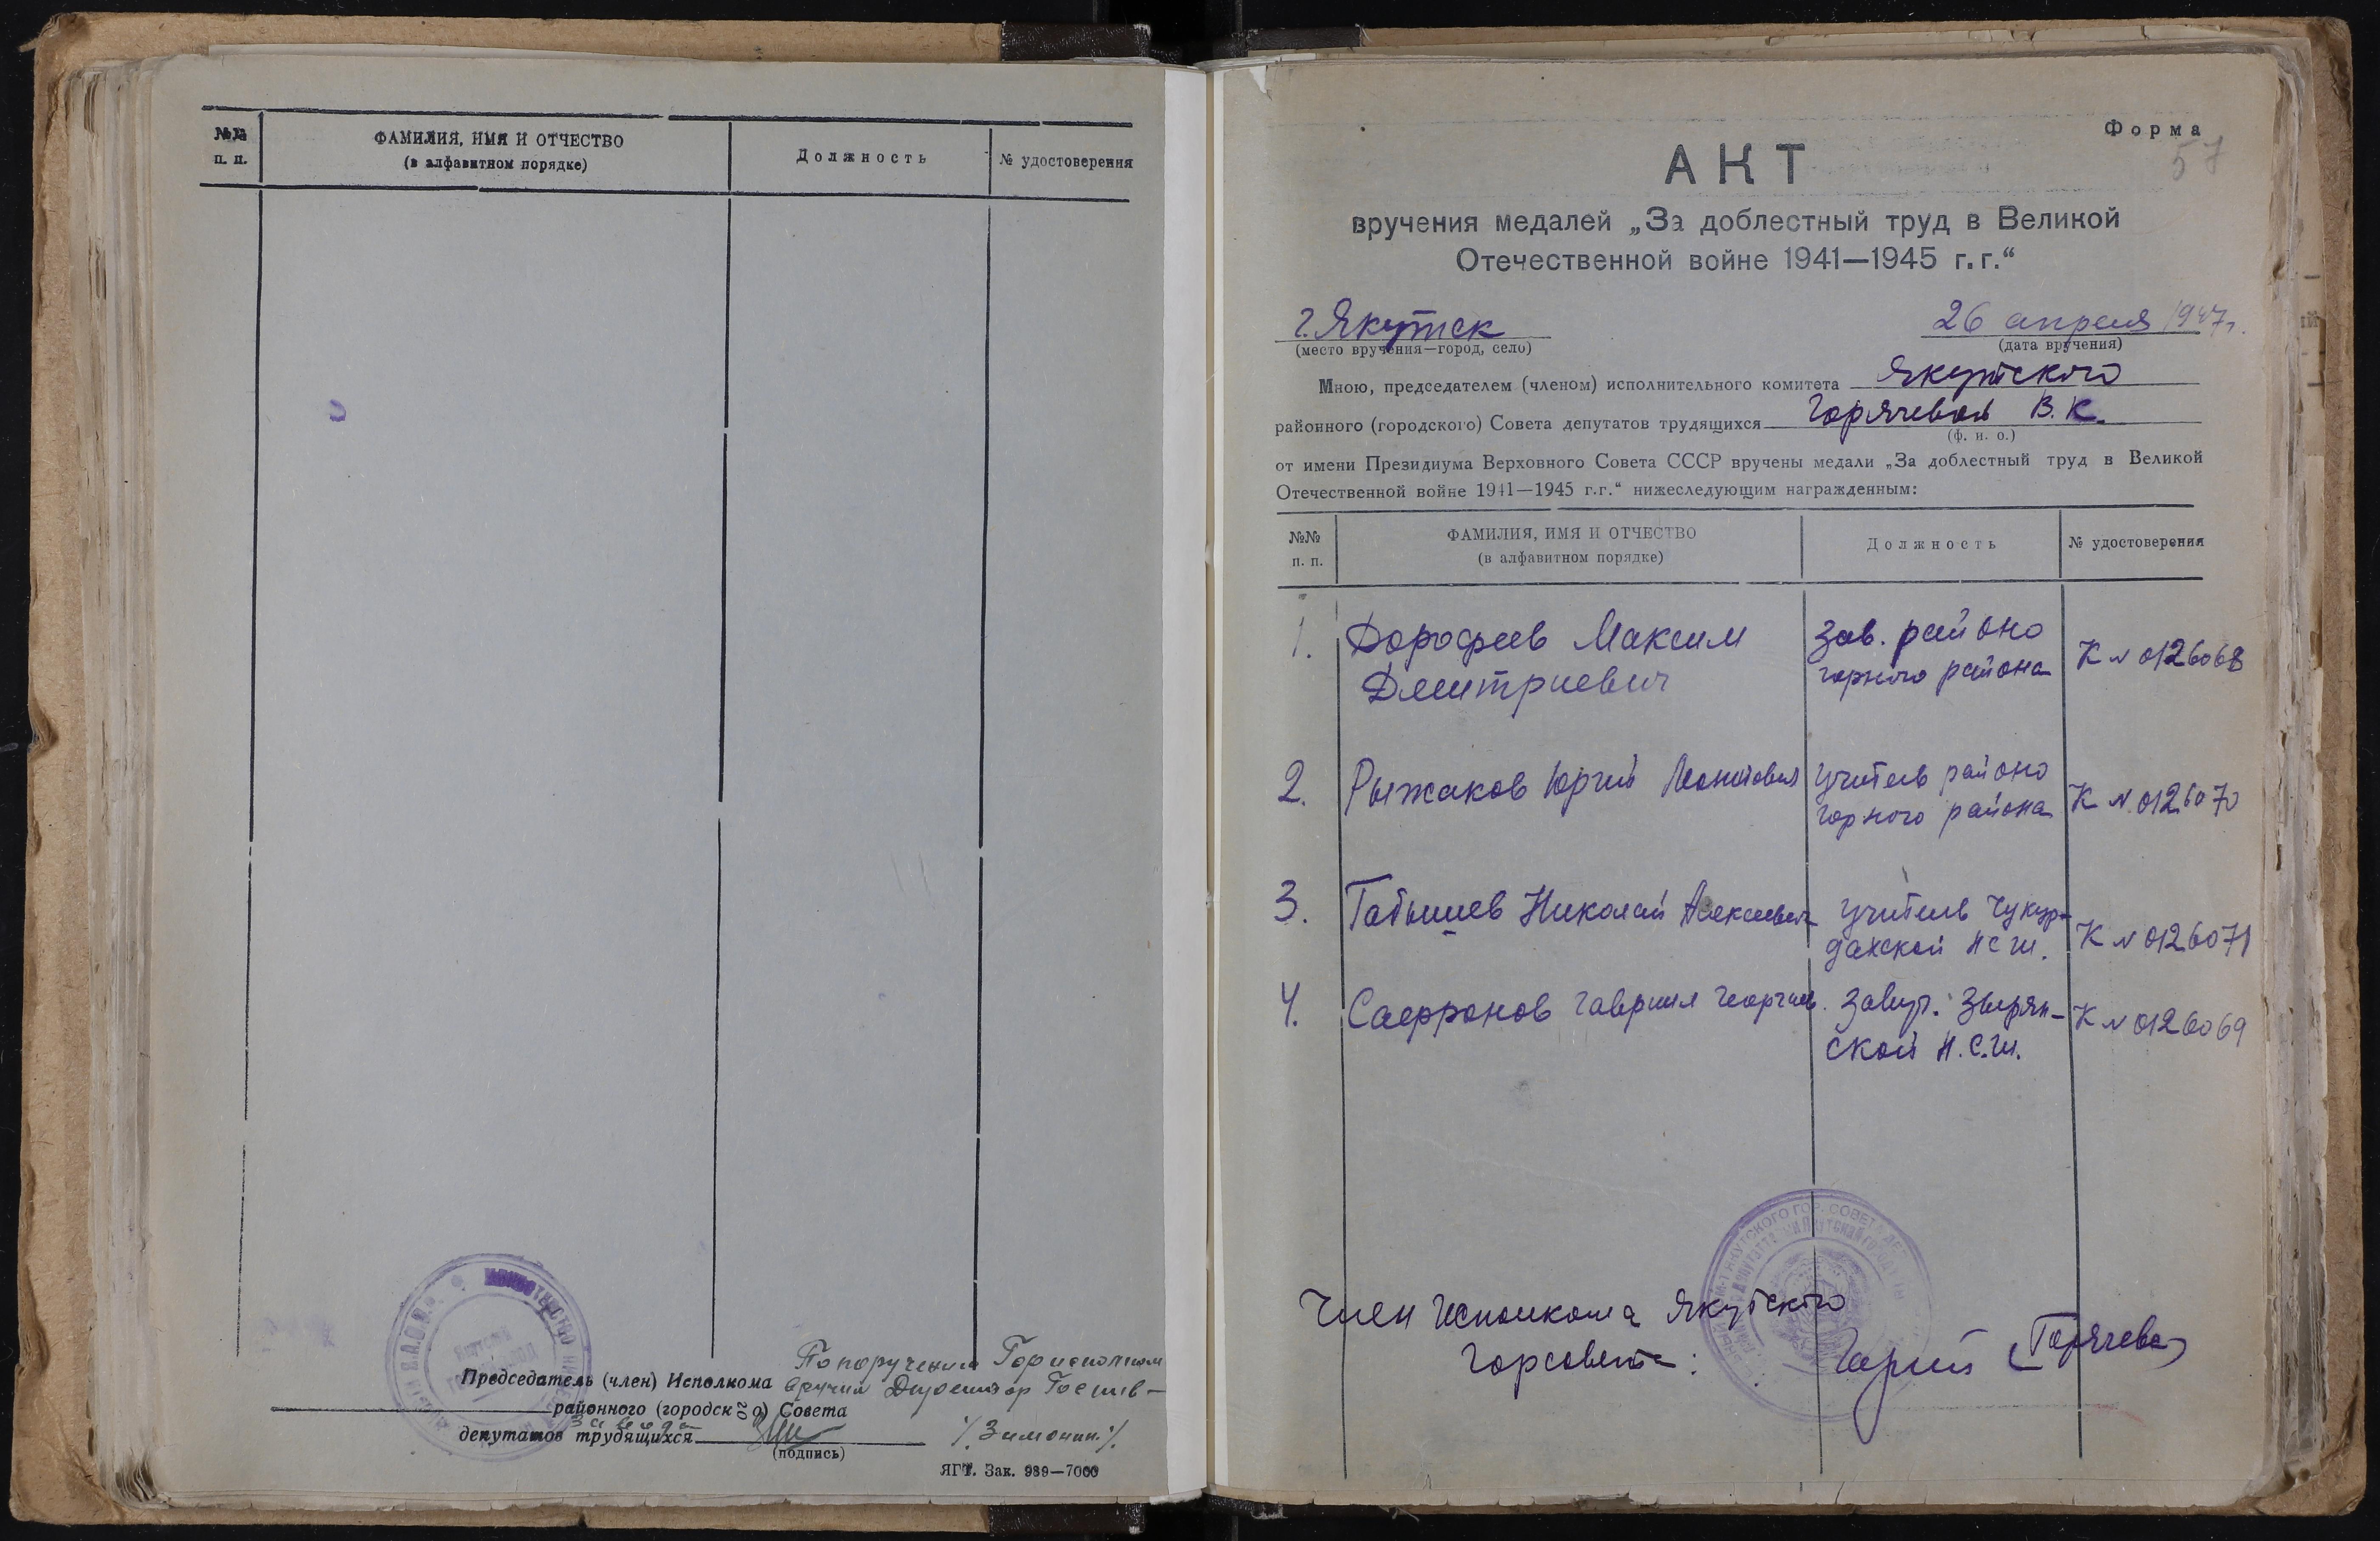 №№
п. п.
ФАМИЛИЯ, ИМЯ И ОТЧЕСТВО
(в алфавитном порядке)
Должность
№ удостоверения
По поручению Горисполкома
Председатель (член) Исполкома вручил Директор
районного (городского) Совета
завода
депутатов трудящихся
(подпись)
ЯГТ. Зак. 989—7000
Форма
57
АКТ
вручения медалей „За доблестный труд в Великой
Отечественной войне 1941—1945 г.г.“
г. Якутск
26 апреля 1947 г.
(место вручения—город, село)
(дата вручения)
Мною, председателем (членом) исполнительного комитета Якутского
районного (городского) Совета депутатов трудящихся Горячевой В. К.
(ф. и. о.)
от имени Президиума Верховного Совета СССР вручены медали „За доблестный труд в Великой
Отечественной войне 1941—1945 г.г.“ нижеследующим награжденным:
№№
п. п.
ФАМИЛИЯ, ИМЯ И ОТЧЕСТВО
(в алфавитном порядке)
Должность
№ удостоверения
1. Дорофеев Максим Зав. районо К № 0126068
Дмитриевич горного района
2. Рыжаков Юрий учитель районо К № 0126070
горного района
3. Табышев Николай Алексеевич учитель Чукур-
дахской НСШ. К № 0126071
4. Сафронов Гавриил Георгиев. Завуч. Зырян- К № 0126069
ской Н.С.Ш.
Член Исполкома Якутского
Горсовета: (Горячева)